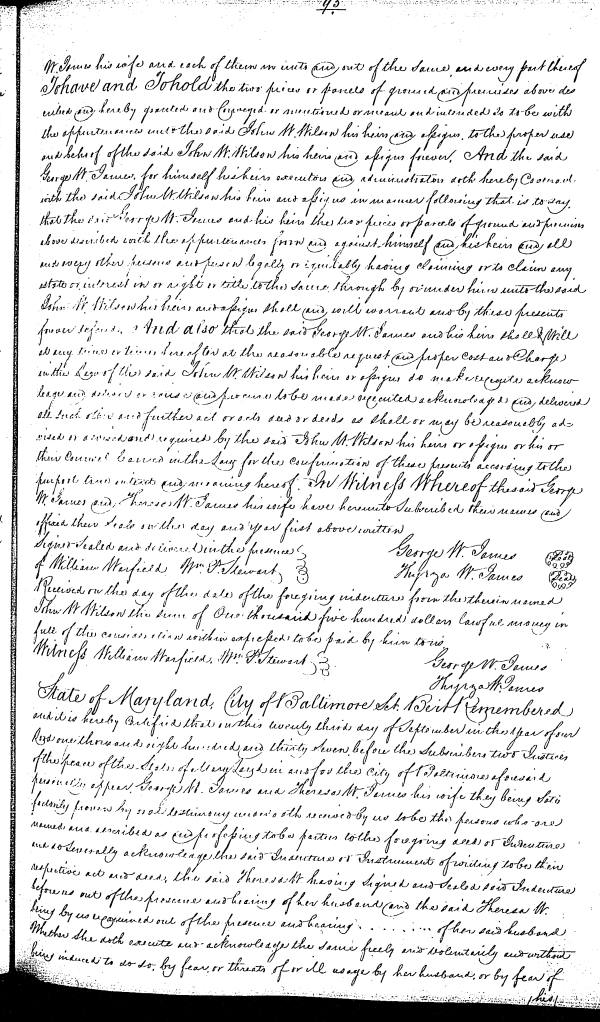 95
W. James his wife and each of them in unto and out of the same, and every part thereof
To have and To hold the two pieces or parcels of ground and premises above des
cribed and hereby granted and Conveyed or mentioned or meant and intended so to be with
the appurtenances unto the said John W. Wilson his heirs and assigns, to the proper use
and behoof of the said John W. Wilson his heirs and assigns forever. And the said
George W. James, for himself his heirs executors and administrators doth hereby Covenant
with the said John W Wilson his heirs and assigns in manner following that is to say
that the said George W. James and his heirs the two pieces or parcels of ground and premises
above described with the appurtenances from and against himself and his heirs and all
and every other persons and person legally or equitably having claiming or to claim any
estate or interest in or right or title to the same, through by or under him unto the said
John W. Wilson his heirs and assigns shall and will warrant and by these presents
forever defend. And also that the said George W. James and his heirs shall & Will
at any time or times hereafter at the reasonable request and proper Cost and Charge
in the Law of the said John W. Wilson his heirs or assigns do make execute acknow
ledge and deliver or cause and procure to be made executed acknowledged and delivered
all such other and further act or acts deed or deeds as shall or may be reasonably ad-
vised or devised and required by the said John W. Wilson his heirs or assigns or his or
their Counsel learned in the Law for the confirmation of these presents according to the
purport true intent and meaning hereof. In Witness Whereof the said George
W James and Theresa W. James his wife have hereunto Subscribed their names and
affixed their Seals on the day and year first above written
Signed Sealed and delivered in the presence
of William Warfield Wm P. Stewart
George W. James Seal
Thyrza W. James Seal
Received on the day of the date of the foregoing indenture from the therein named
John W Wilson the sum of One thousand five hundred dollars lawful money in
full of the consideration within expressed to be paid by him to us
Witness William Warfield, Wm P. Stewart
George W. James
Thyrza W. James
State of Maryland, City of Baltimore Sct. Be it Remembered
and it is hereby Certified that on this twenty third day of September in the year of our
Lord one thousand eight hundred and thirty seven, before the Subscribers two Justices
of the peace of the State of Maryland in and for the City of Baltimore aforesaid
personally appear George W. James and Theresa W. James his wife they being satis
factorily proven by oral testimony under oath received by us to be the persons who are
named and described as and professing to be parties to the foregoing deed or Indenture
and do Severally acknowledge the said Indenture or Instrument of writing to be their
respective act and deed; the said Theresa W having Signed and Sealed said Indenture
before us out of the presence and hearing of her husband and the said Theresa W.
being by us examined out of the presence and hearing ......... of her said husband
Whether She doth execute and acknowledge the same freely and voluntarily and without
being induced to do so, by fear, or threats of or ill usage by her husband, or by fear of
his